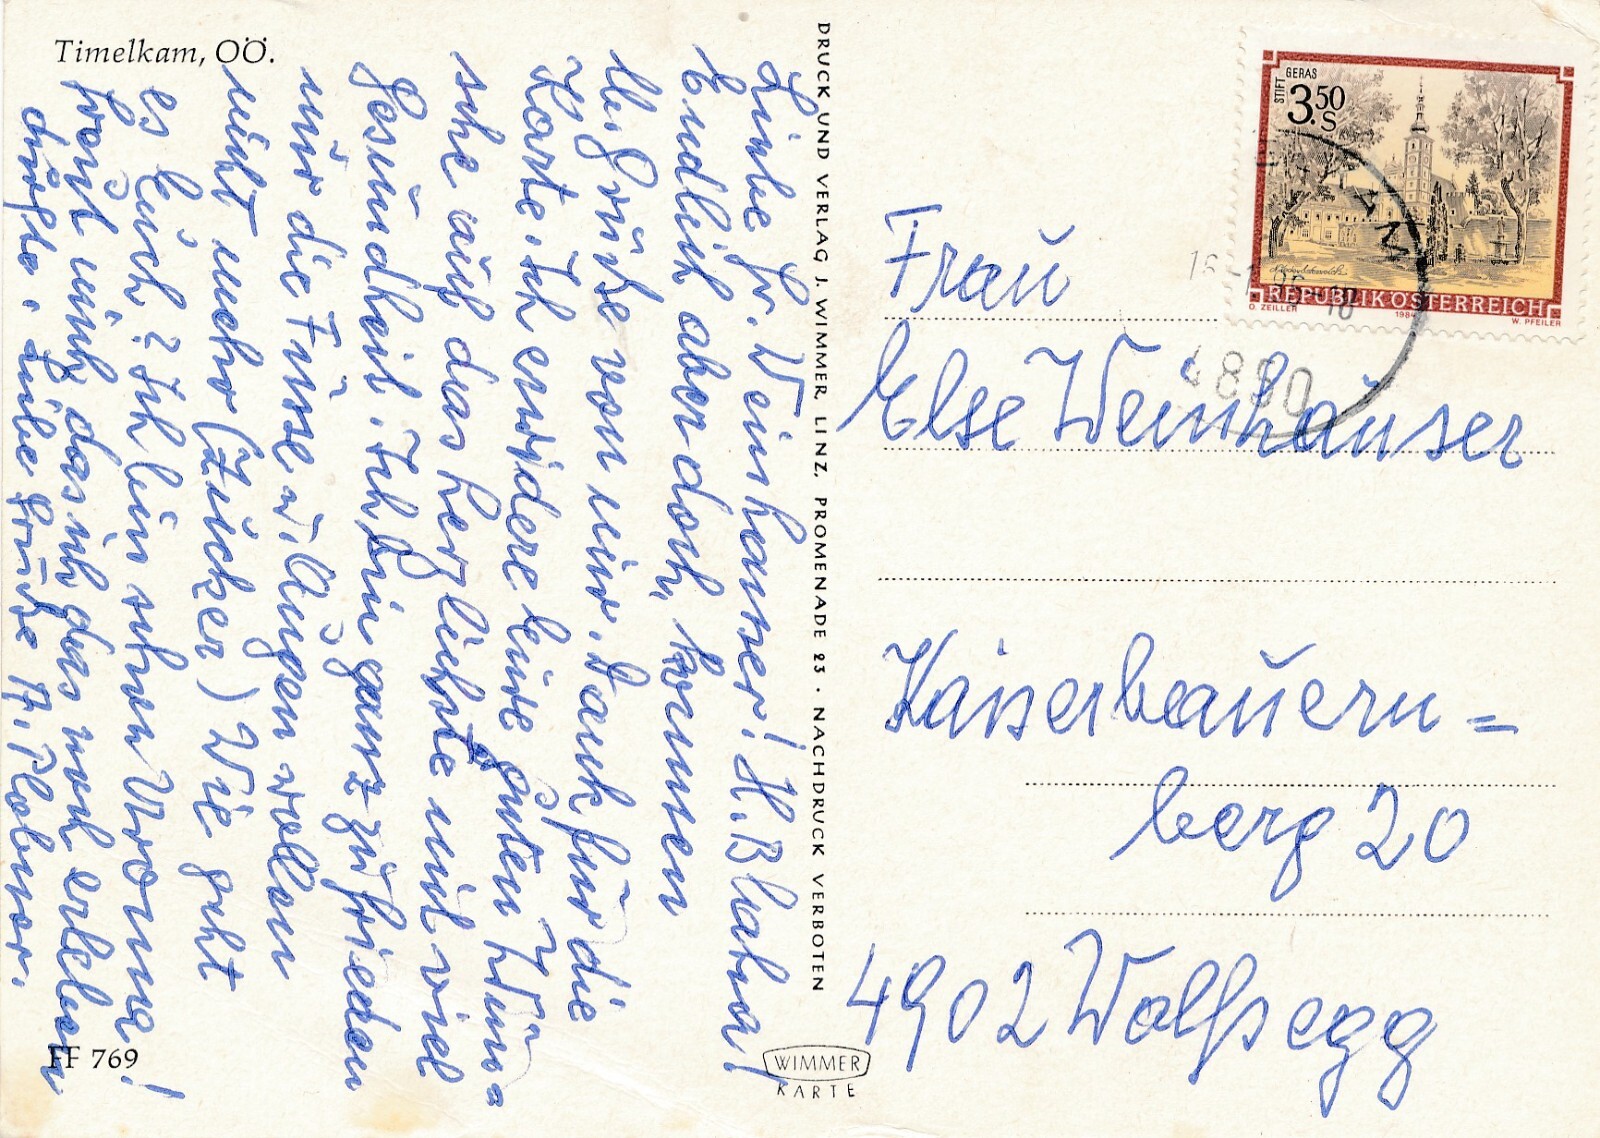 Timelkam, OÖ.
Liebe Fr. Weinhauser! H. Blaha!
Endlich aber doch, kommen
lb. Grüße von mir. Dank für die
Karte. Ich erwidere Eure guten Wün=
sche auf das herzlichste mit viel
Gesundheit. Ich bin ganz zufrieden
nur die Füsse u. Augen wollen
nicht mehr (Zucker) Wie geht
es Euch? Ich bin schon Uroma!
freut mich, das ich das noch erleben
dürfte. Liebe Grüße
FF 769
DRUCK UND VERLAG J. WIMMER, LINZ, PROMENADE 23 · NACHDRUCK VERBOTEN
WIMMER
KARTE
STIFT GERAS
3.50
S
REPUBLIK ÖSTERREICH
O. ZEILLER 1984 W. PFEILER
4890
Frau
Else Weinhauser
Kaiserbauern=
berg 20
4902 Wolfsegg